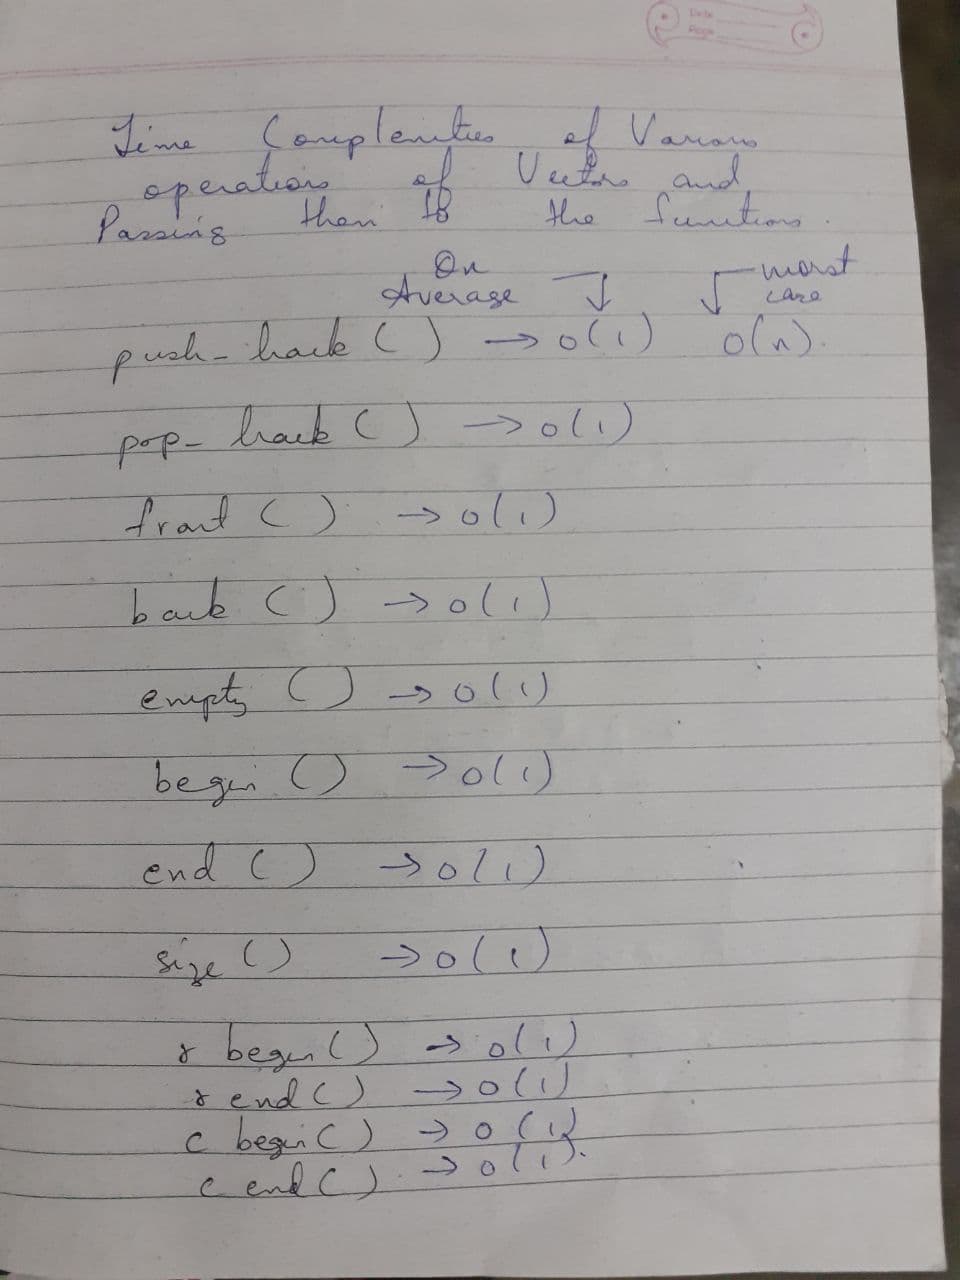 Date
Page
Time Complexities of Various
operations of Vectors and
Passing them to the functions.
On
Average worst
case
push-back () → o(1) o(n).
pop-back () → o(1)
front () → o(1)
back () → o(1)
empty () → o(1)
begin () → o(1)
end () → o(1)
size () → o(1)
r begin () → o(1)
r end () → o(1)
c begin () → o(1)
c end () → o(1).